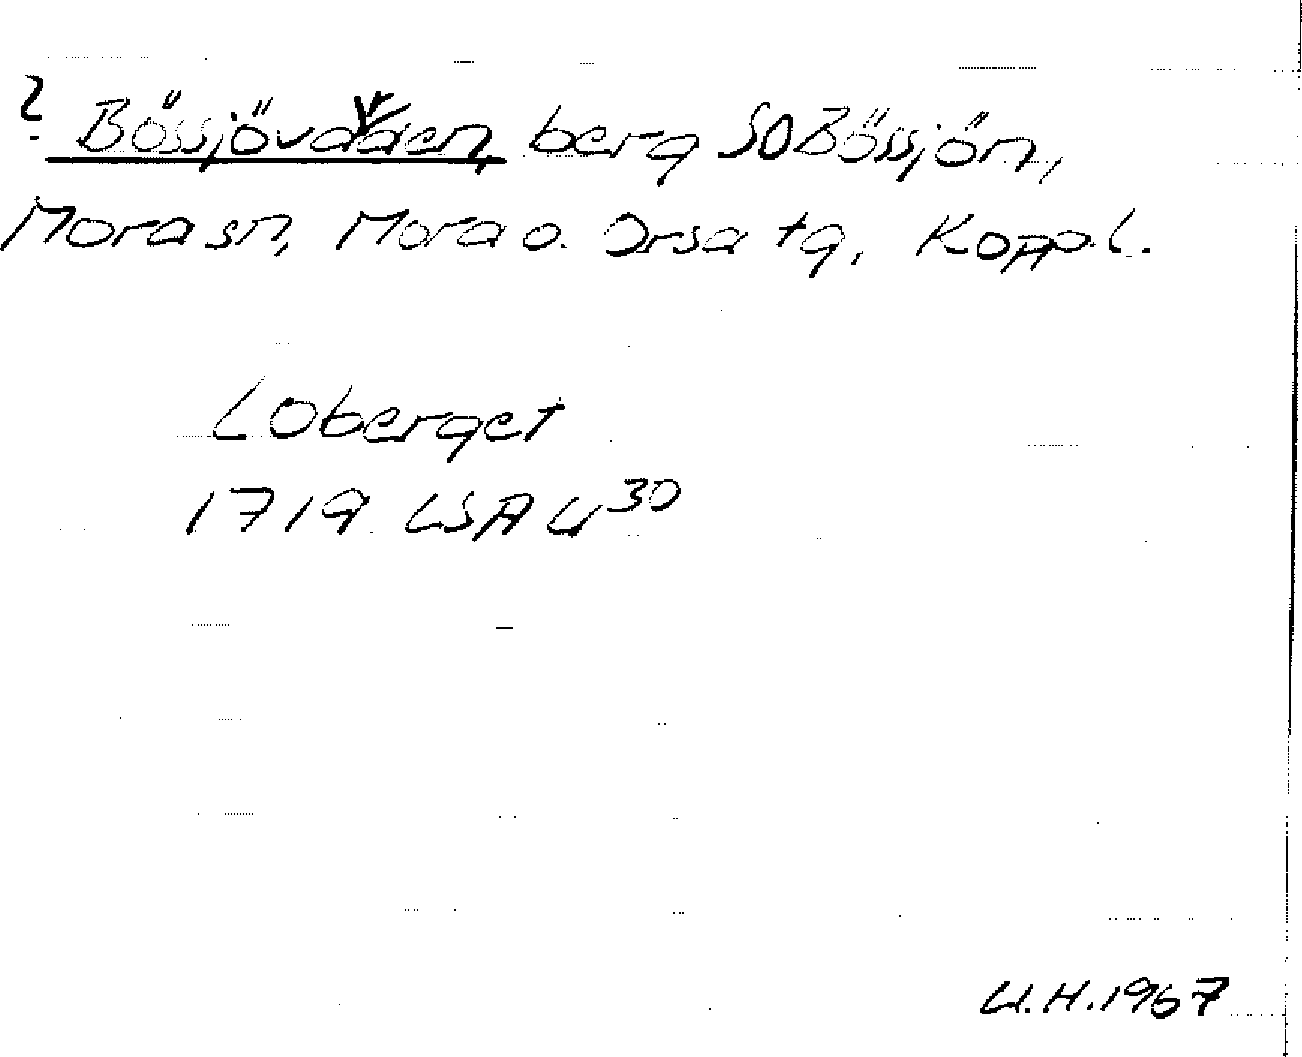 ? Bössjövarden, berg SO Bössjön,
Mora sn, Mora o. Orsa tg, Kopp.l.
Loberget
1719 LSA U30
U.H.1967